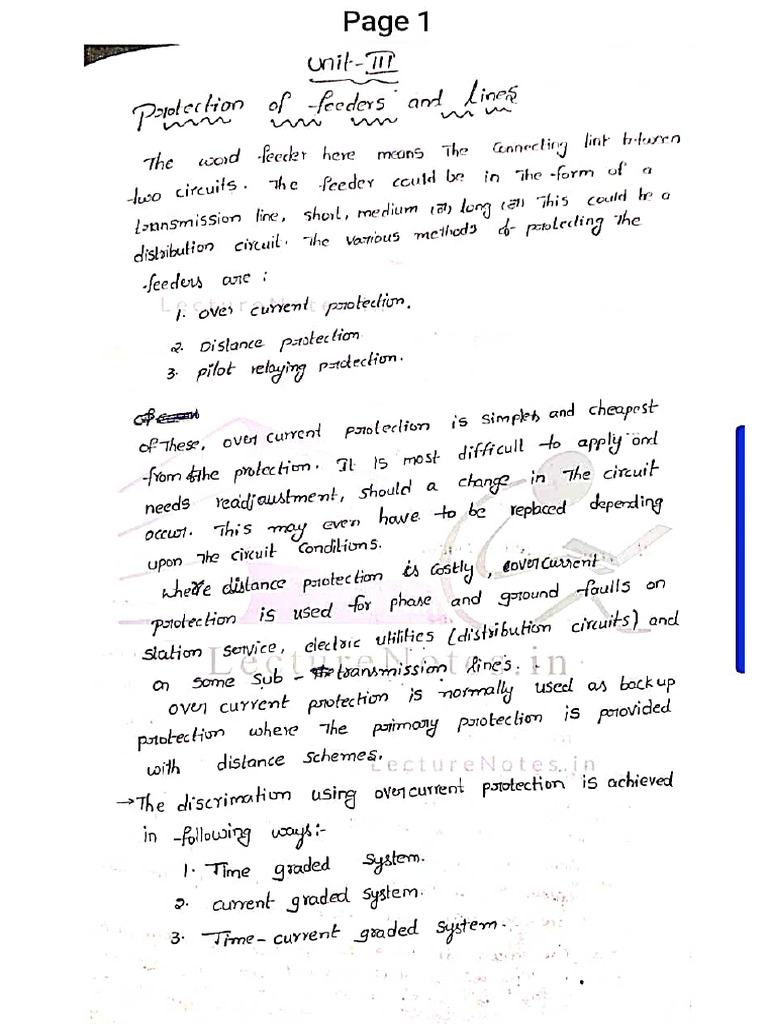 Page 1
Unit-III
Protection of feeders and lines
The word feeder here means The Connecting link between
two circuits. The feeder could be in The form of a
transmission line, short, medium (or) long (or) This could be a
distribution circuit. The various methods of protecting The
feeders are :
LectureNotes.in
1. Over current protection.
2. Distance protection
3. pilot relaying protection.
of These, over current protection is simplest and cheapest
from the protection. It is most difficult to apply and
needs readjaustment, should a change in The circuit
occur. This may even have to be replaced depending
upon The circuit Conditions.
where distance protection is Costly, overcurrent
protection is used for phase and ground faults on
station service, electric utilities (distribution circuits) and
LectureNotes.in
on some sub-transmission lines.
over current protection is normally used as backup
protection where The primary protection is provided
with distance schemes.
LectureNotes.in
→The discrimation using overcurrent protection is achieved
in following ways:-
1. Time graded system.
2. current graded system.
3. Time-current graded system.